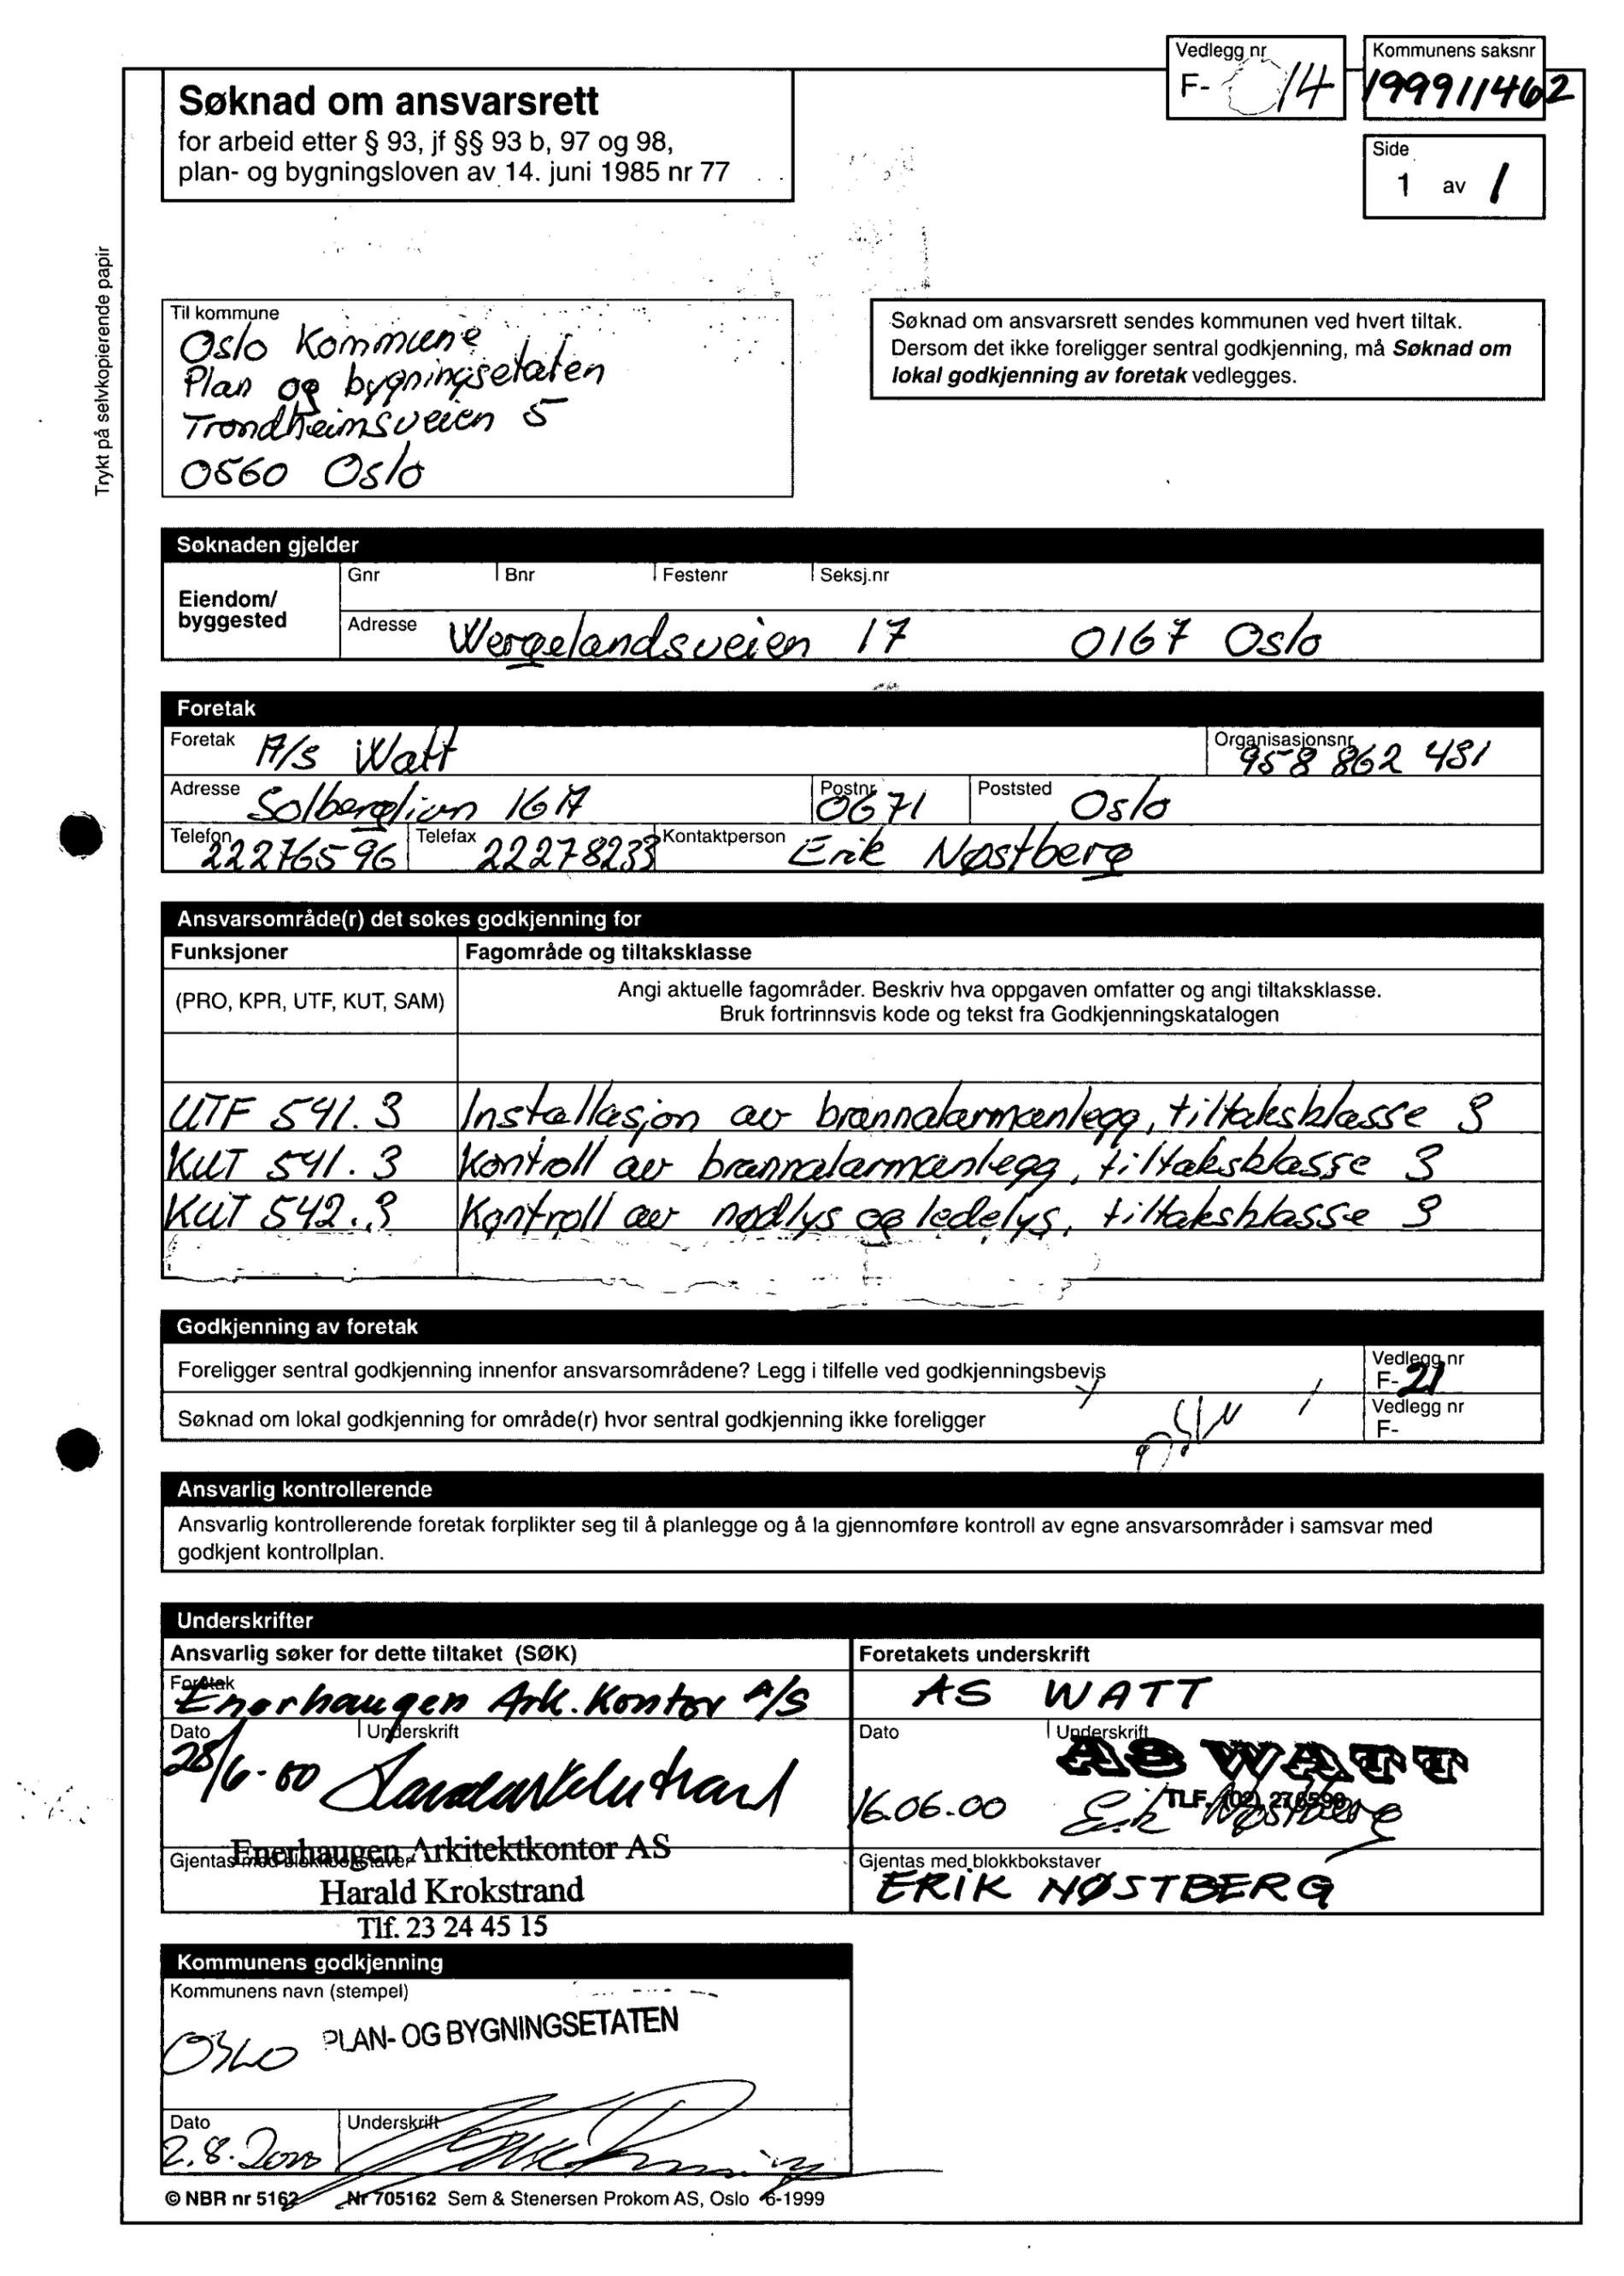 Vedlegg nr
F- 14
Kommunens saksnr
199911462
Søknad om ansvarsrett
for arbeid etter § 93, jf §§ 93 b, 97 og 98,
plan- og bygningsloven av 14. juni 1985 nr 77
Side
1 av 1
Trykt på selvkopierende papir
Til kommune
Oslo Kommune
Plan og bygningsetaten
Trondheimsveien 5
0560 Oslo
Søknad om ansvarsrett sendes kommunen ved hvert tiltak.
Dersom det ikke foreligger sentral godkjenning, må Søknad om
lokal godkjenning av foretak vedlegges.
Søknaden gjelder
Eiendom/
byggested
Gnr Bnr Festenr Seksj.nr
Adresse Wergelandsveien 17 0167 Oslo
Foretak
Foretak A/S Watt Organisasjonsnr 958 862 481
Adresse Solberglivn 16 A Postnr 0671 Poststed Oslo
Telefon 22276596 Telefax 22278233 Kontaktperson Erik Nøstberg
Ansvarsområde(r) det søkes godkjenning for
Funksjoner Fagområde og tiltaksklasse
(PRO, KPR, UTF, KUT, SAM)
Angi aktuelle fagområder. Beskriv hva oppgaven omfatter og angi tiltaksklasse.
Bruk fortrinnsvis kode og tekst fra Godkjenningskatalogen
UTF 541.3 Installasjon av brannalarmanlegg, tiltaksklasse 3
KUT 541.3 Kontroll av brannalarmanlegg, tiltaksklasse 3
KUT 542.3 Kontroll av nødlys og ledelys, tiltaksklasse 3
Godkjenning av foretak
Foreligger sentral godkjenning innenfor ansvarsområdene? Legg i tilfelle ved godkjenningsbevis
Vedlegg nr
F- 21
Søknad om lokal godkjenning for område(r) hvor sentral godkjenning ikke foreligger
Vedlegg nr
F-
Ansvarlig kontrollerende
Ansvarlig kontrollerende foretak forplikter seg til å planlegge og å la gjennomføre kontroll av egne ansvarsområder i samsvar med
godkjent kontrollplan.
Underskrifter
Ansvarlig søker for dette tiltaket (SØK)
Foretak
Enerhaugen Ark. Kontor A/S
Dato Underskrift
28/6-00
Gjentas med blokkbokstaver
Enerhaugen Arkitektkontor AS
Harald Krokstrand
Tlf. 23 24 45 15
Foretakets underskrift
AS WATT
Dato Underskrift
AS WATT
TLF. (02) 276596
16.06.00 Erik Nøstberg
Gjentas med blokkbokstaver
ERIK NØSTBERG
Kommunens godkjenning
Kommunens navn (stempel)
OSLO PLAN- OG BYGNINGSETATEN
Dato Underskrift
2.8.2000
© NBR nr 5162 Nr 705162 Sem & Stenersen Prokom AS, Oslo 6-1999